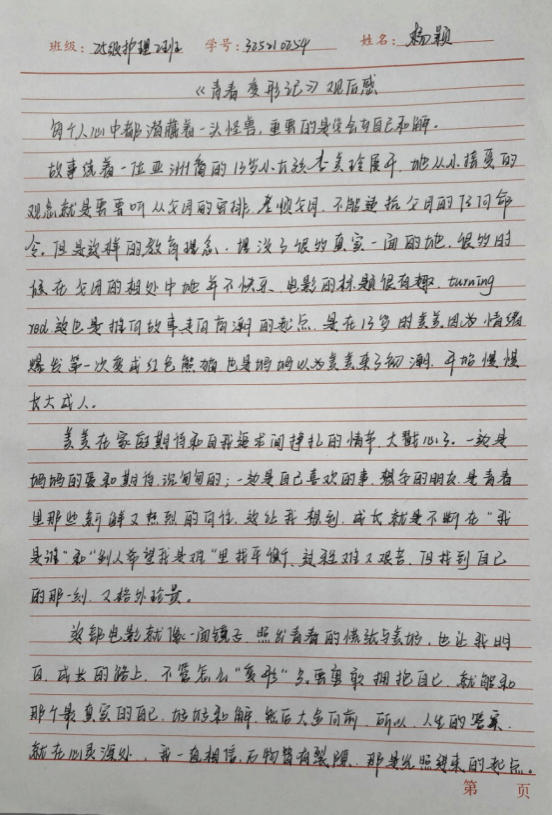 班级：25级护理2班 学号：325210254 姓名：杨颖
《青春变形记》观后感
每个人心中都潜藏着一头怪兽，重要的是学会与自己和解。
故事绕着一位亚洲裔的13岁小女孩李美玲展开，她从小接受的
观念就是需要听从父母的安排，孝顺父母，不能违抗父母的任何命
令，但是这样的教育理念，埋没了很多真实一面的她，很多时
候在父母的相处中她并不快乐，电影的标题很有趣，turning
red，这也是推向故事走向高潮的起点，是在13岁的美美，因为情绪
爆发第一次变成红色熊猫，也是妈妈以为美美来了初潮，开始慢慢
长大成人。
美美在家庭期待和自我追求间挣扎的情节，太戳心了。一边是
妈妈的爱和期待，沉甸甸的；一边是自己喜欢的事，想交的朋友，是青春
里那些新鲜又热烈的向往，这让我想到，成长就是不断在“我
是谁”和“别人希望我是谁”里找平衡，过程难又艰苦，但找到自己
的那一刻，又格外珍贵。
这部电影就像一面镜子，照出青春的慌张与美好，也让我明
白，成长的路上，不管怎么“变形”，只要勇敢拥抱自己，就能和
那个最真实的自己，好好和解，然后大步向前，所以，人生的答案，
就在心灵深处，我一直相信，万物皆有裂隙，那是光照进来的起点。
第 页